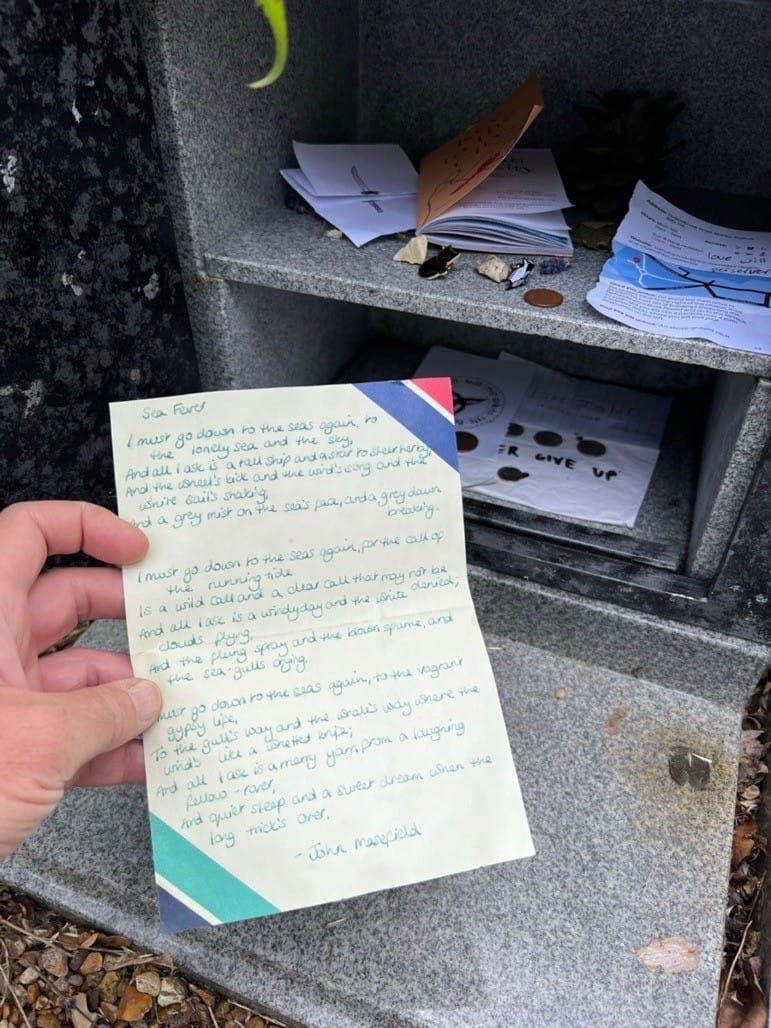 Sea Fever
I must go down to the seas again, to
the lonely sea and the sky,
And all I ask is a tall ship and a star to steer her by;
And the wheel's kick and the wind's song and the
white sail's shaking,
And a grey mist on the sea's face, and a grey dawn
breaking.
I must go down to the seas again, for the call of
the running tide
Is a wild call and a clear call that may not be
denied;
And all I ask is a windy day and the white
clouds flying,
And the flung spray and the blown spume, and
the sea-gulls crying.
I must go down to the seas again, to the vagrant
gypsy life,
To the gull's way and the whale's way where the
wind's like a whetted knife;
And all I ask is a merry yarn from a laughing
fellow-rover,
And quiet sleep and a sweet dream when the
long trick's over.
- John Masefield
love will
perserver
ER GIVE UP